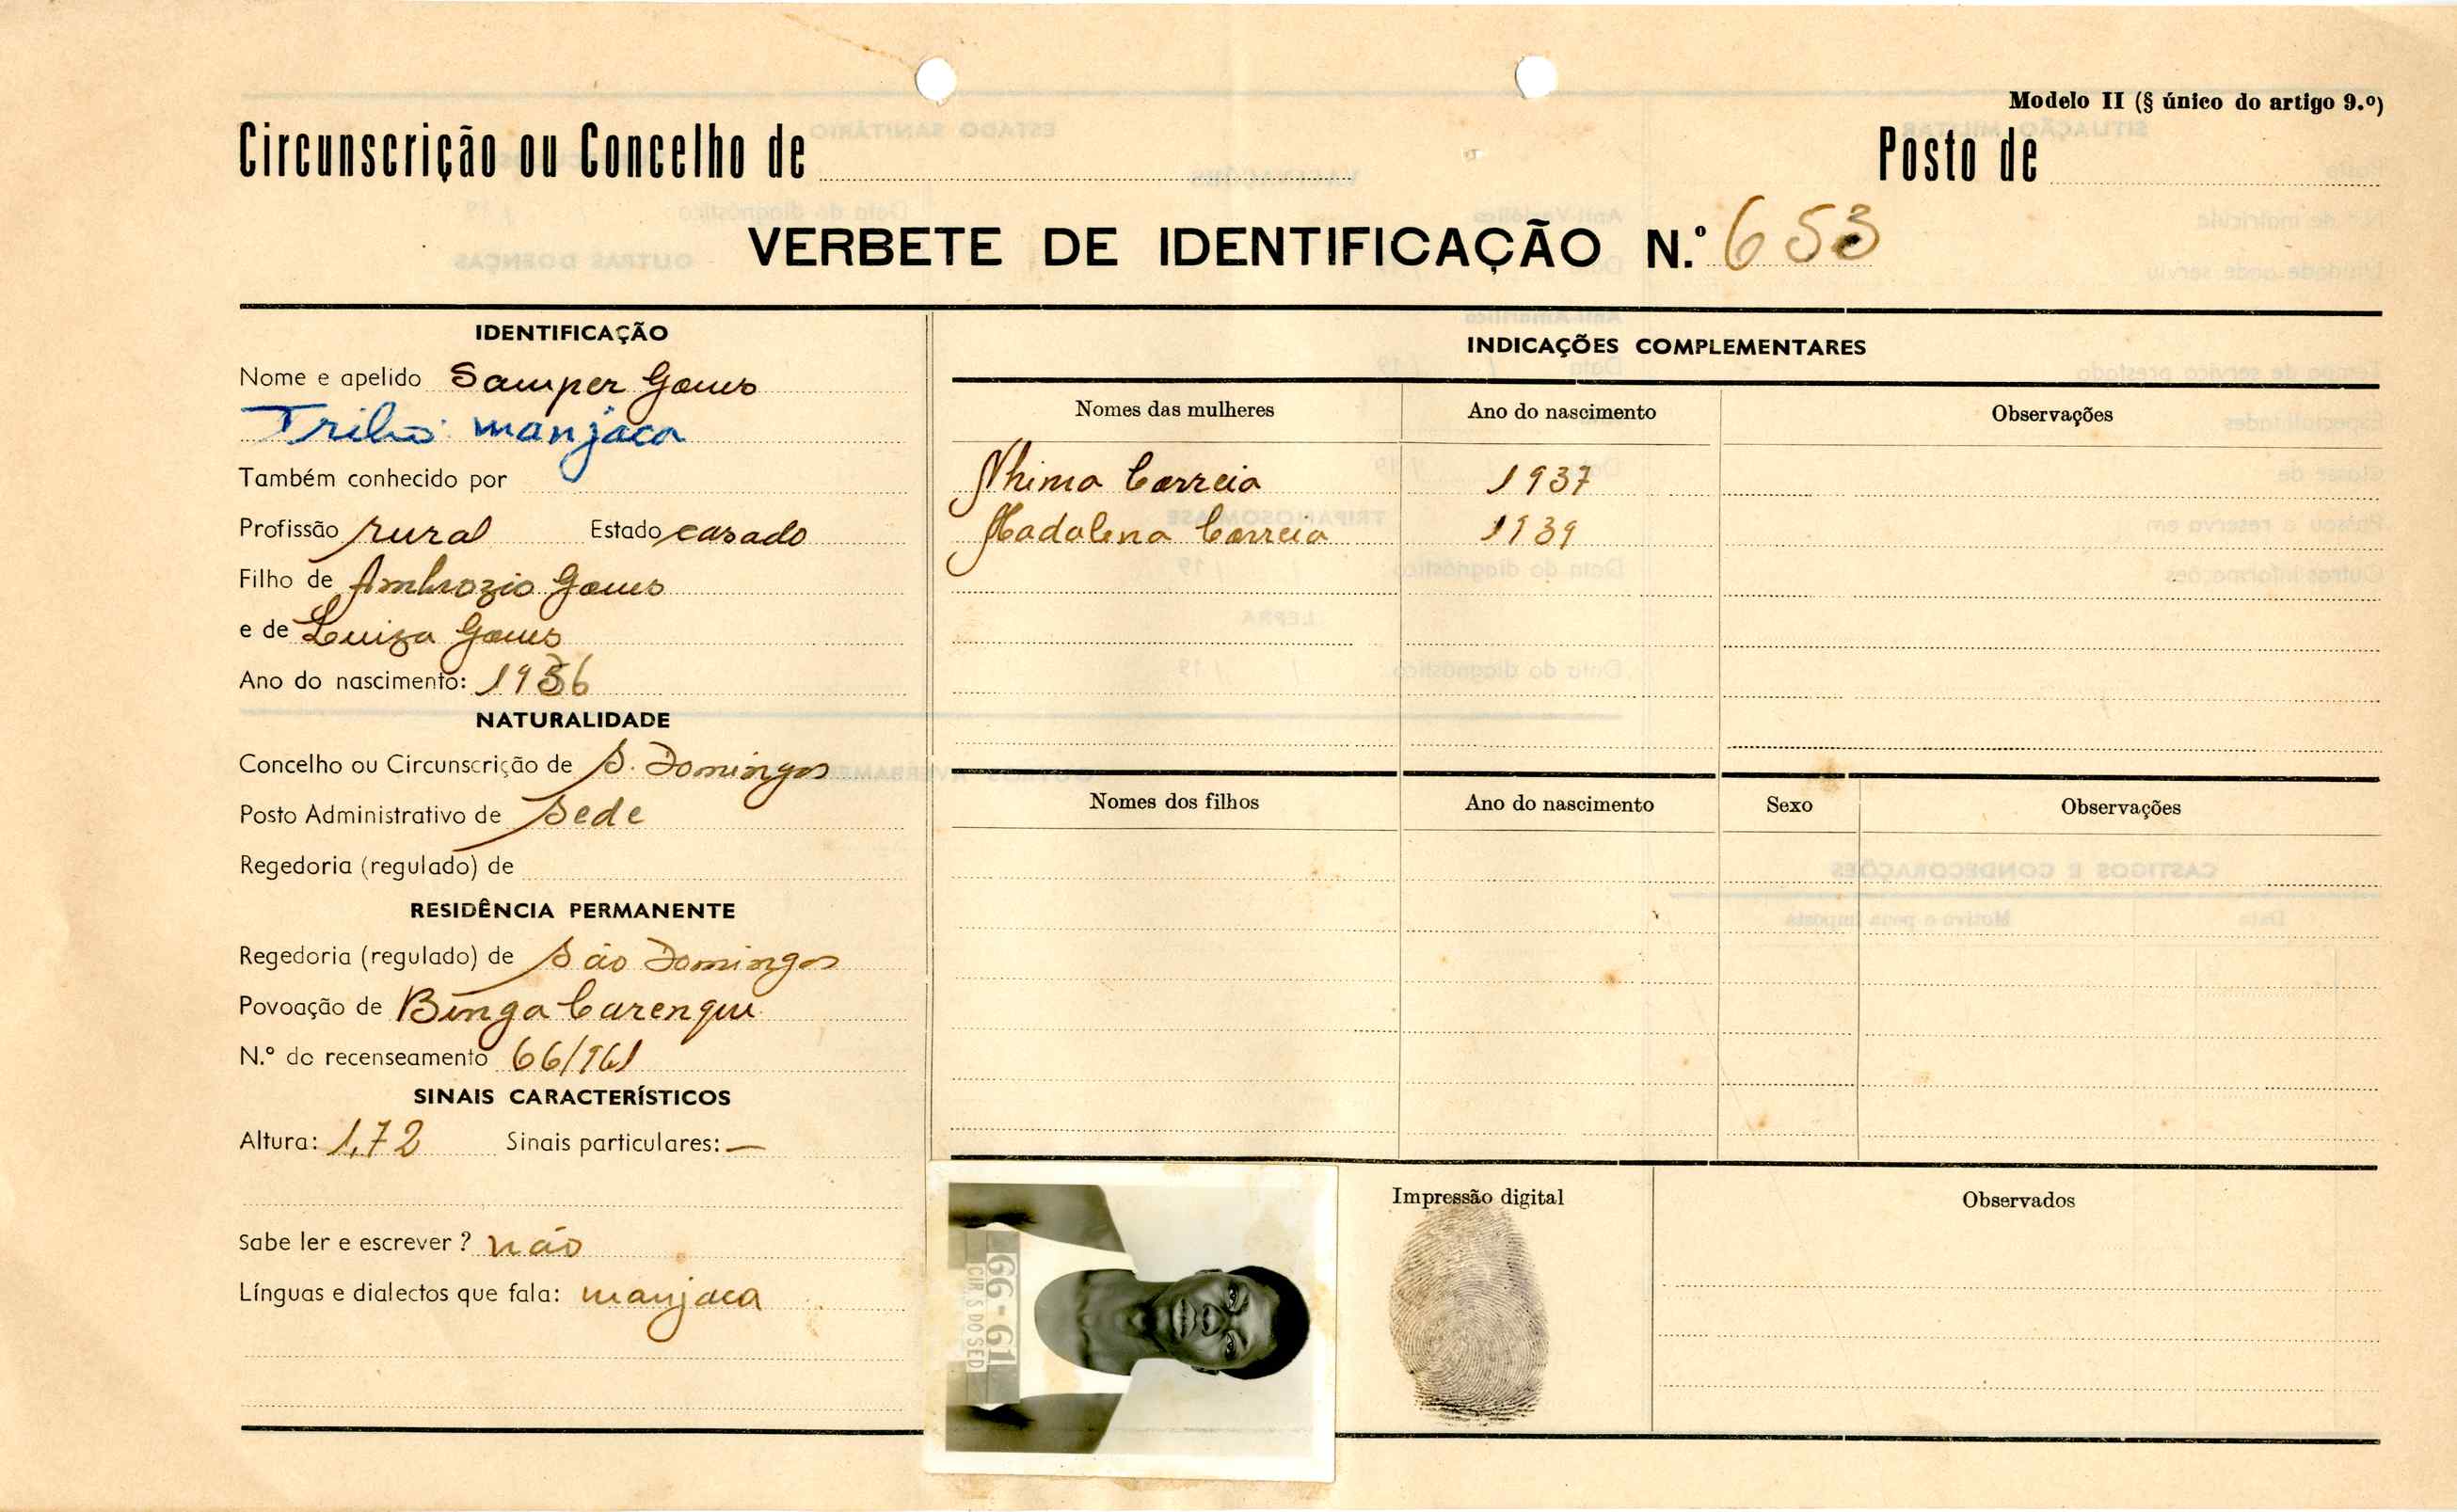 Modelo II (§ único do artigo 9.º)
Circunscrição ou Concelho de
Posto de
VERBETE DE IDENTIFICAÇÃO N.º 653
IDENTIFICAÇÃO
Nome e apelido Samper Gomes
Tribo: manjaca
Também conhecido por
Profissão rural Estado casado
Filho de Ambrozio Gomes
e de Luiza Gomes
Ano do nascimento: 1936
NATURALIDADE
Concelho ou Circunscrição de S. Domingos
Posto Administrativo de Sede
Regedoria (regulado) de
RESIDÊNCIA PERMANENTE
Regedoria (regulado) de São Domingos
Povoação de Binga Carenque
N.º do recenseamento 66/961
SINAIS CARACTERÍSTICOS
Altura: 1,72 Sinais particulares: —
Sabe ler e escrever? não
Línguas e dialectos que fala: manjaca
INDICAÇÕES COMPLEMENTARES
Nomes das mulheres Ano do nascimento Observações
Nhima Correia 1937
Madalena Correia 1939
Nomes dos filhos Ano do nascimento Sexo Observações
66-61
CIR S DO SED
Impressão digital
Observados